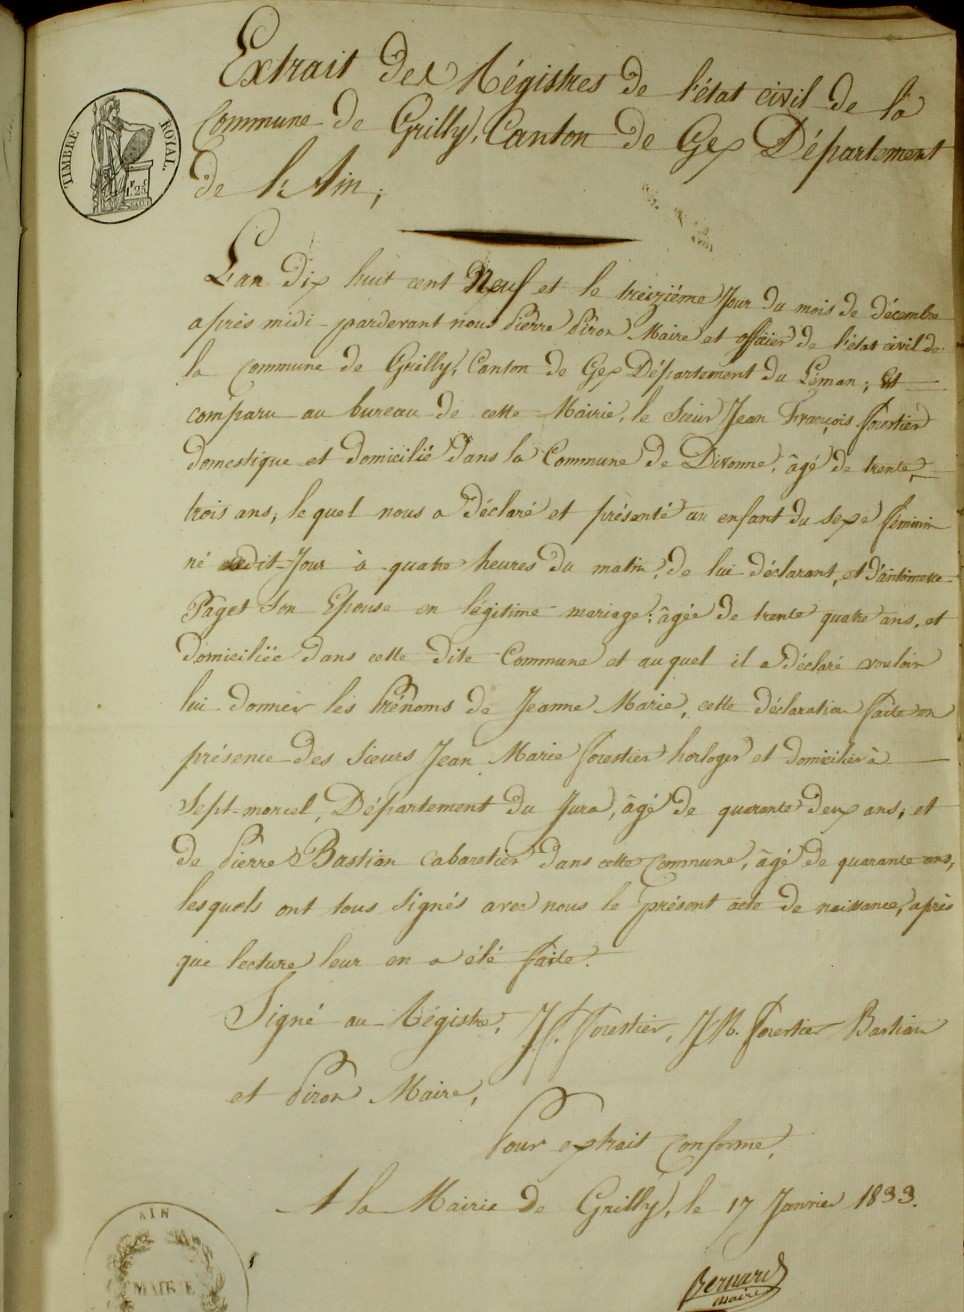 TIMBRE ROYAL
1f. 25c
Extrait des Régistres de l'état civil de la
Commune de Grilly, Canton de Gex Département
de l'Ain,
L'an dix huit cent Neuf et le treizième Jour du mois de décembre
après midi pardevant nous Pierre Piron Maire et officier de l'état civil de
la Commune de Grilly, Canton de Gex Département du Léman, Est
comparu au bureau de cette Mairie, le Sieur Jean François Forestier
domestique et domicilié dans la Commune de Divonne, âgé de trente
trois ans, lequel nous a déclaré et présenté un enfant du sexe féminin
né cedit Jour à quatre heures du matin, de lui déclarant, et d'antoinette
Paget Son Epouse en légitime mariage, âgée de trente quatre ans, et
domiciliée dans cette dite Commune et auquel il a déclaré vouloir
lui donner les Prénoms de Jeanne Marie, cette déclaration faite en
présence des Sieurs Jean Marie Forestier horloger et domicilier à
Sept-moncel, Département du Jura, âgé de quarante deux ans, et
de Pierre Bastian cabaretier dans cette Commune, âgé de quarante ans,
lesquels ont tous Signés avec nous le présent acte de naissance, après
que lecture leur en a été faite.
Signé au Régistre, J.f. Forestier, J M. Forestier Bastian
et Piron Maire,
Pour extrait Conforme,
A la Mairie de Grilly, le 17 Janvier 1833.
AIN
MAIRIE
Bernard
maire